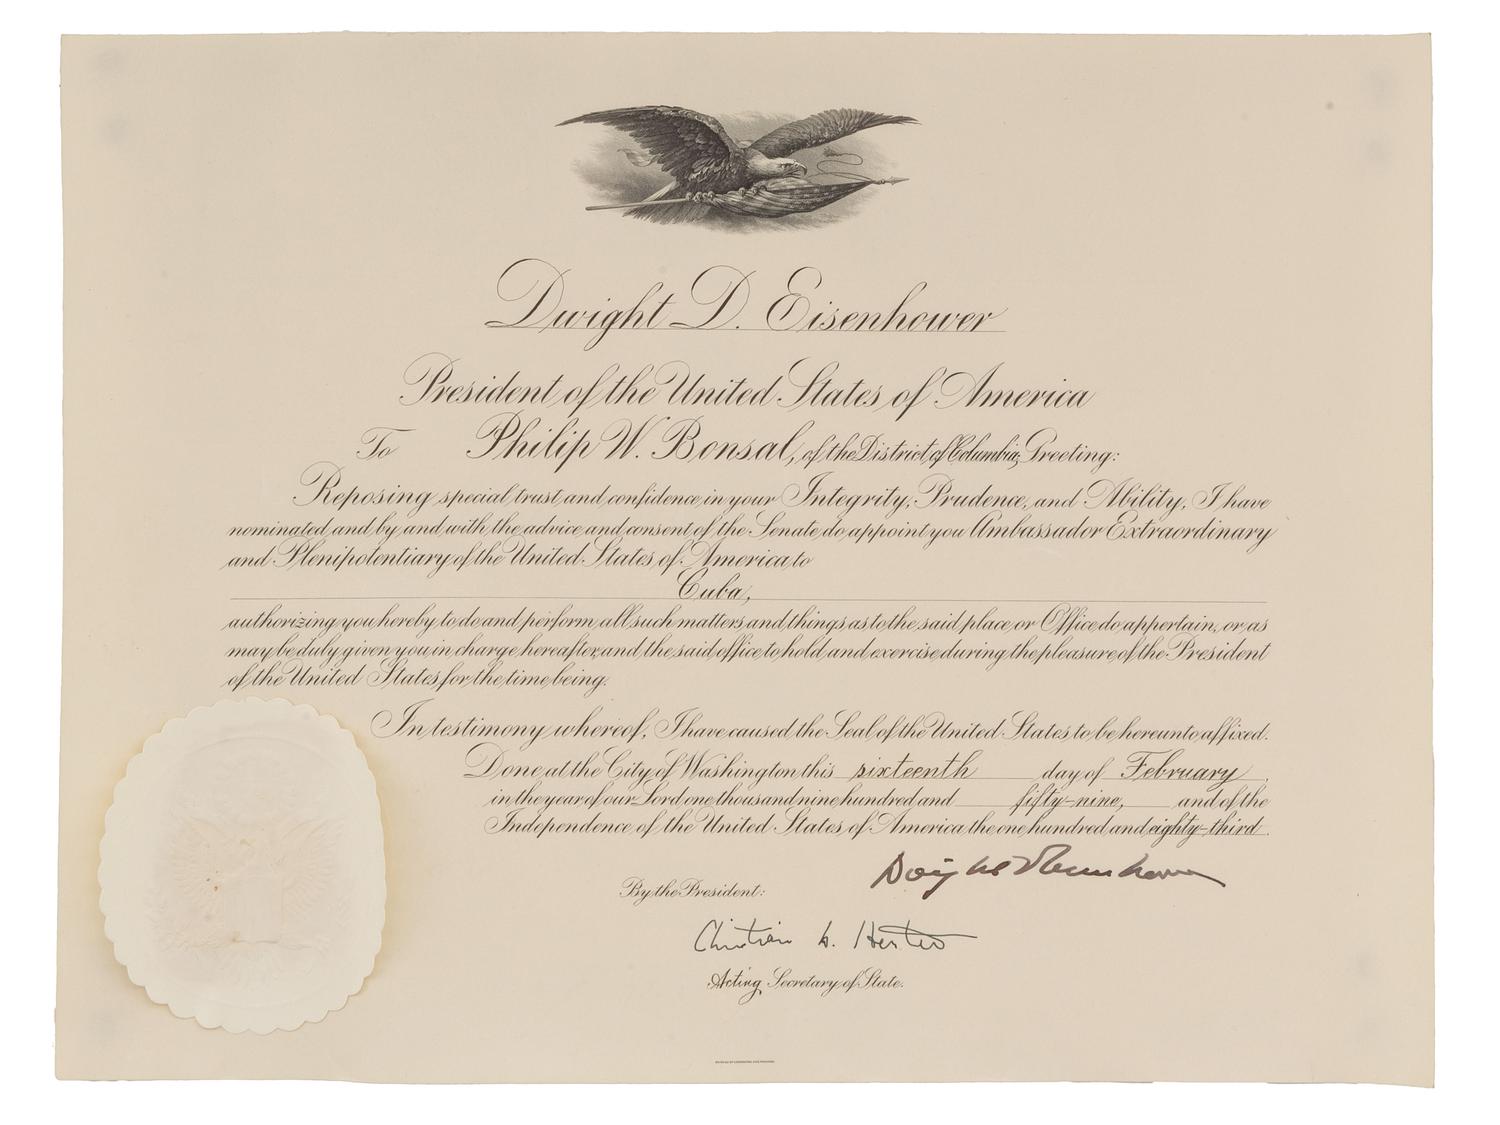 Dwight D. Eisenhower
President of the United States of America
To Philip W. Bonsal, of the District of Columbia, Greeting:
Reposing special trust and confidence in your Integrity, Prudence, and Ability, I have
nominated and by and with the advice and consent of the Senate do appoint you Ambassador Extraordinary
and Plenipotentiary of the United States of America to
Cuba,
authorizing you hereby to do and perform all such matters and things as to the said place or Office do appertain, or as
may be duly given you in charge hereafter, and the said office to hold and exercise during the pleasure of the President
of the United States, for the time being.
In testimony whereof, I have caused the Seal of the United States to be hereunto affixed.
Done at the City of Washington this sixteenth day of February,
in the year of our Lord one thousand nine hundred and fifty-nine, and of the
Independence of the United States of America the one hundred and eighty-third.
Dwight D Eisenhower
By the President:
Christian A. Herter
Acting Secretary of State.